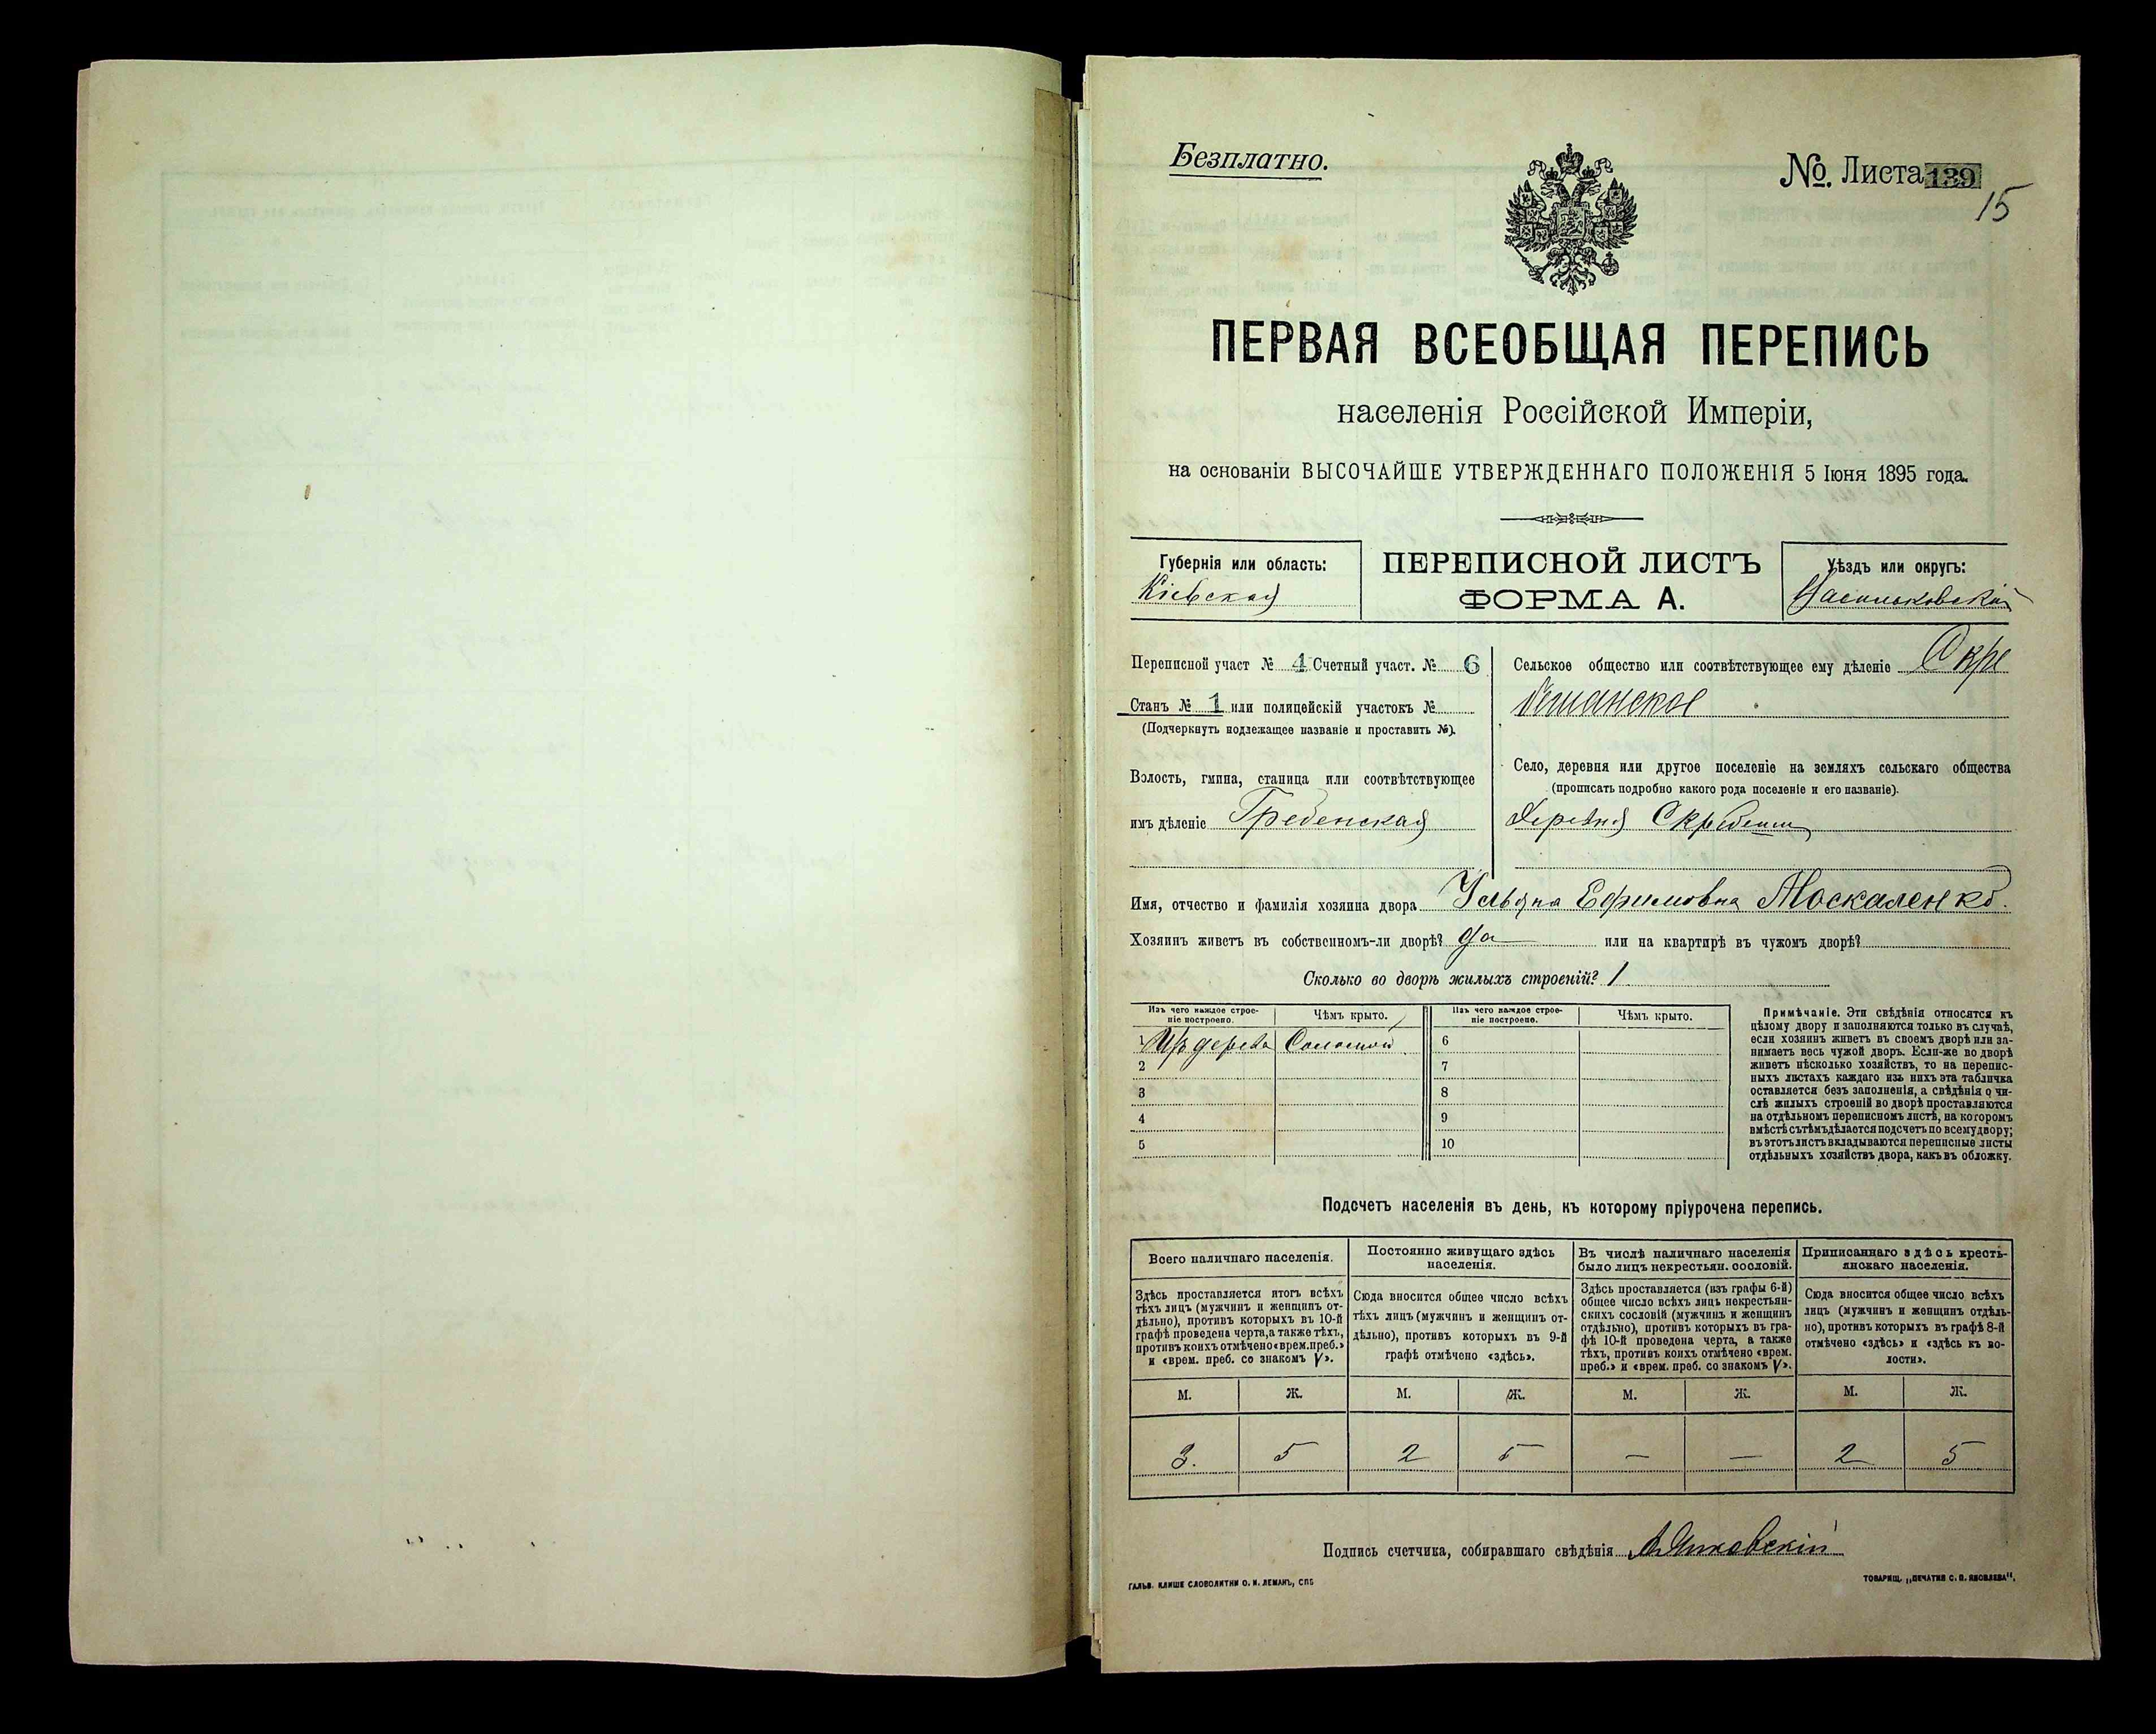 Безплатно.
№. Листа 139
15
ПЕРВАЯ ВСЕОБЩАЯ ПЕРЕПИСЬ
населенія Россійской Имперіи,
на основаніи ВЫСОЧАЙШЕ УТВЕРЖДЕННАГО ПОЛОЖЕНІЯ 5 Іюня 1895 года.
Губернія или область:
Кіевская
ПЕРЕПИСНОЙ ЛИСТЪ
ФОРМА А.
Уѣздъ или округъ:
Васильковскій
Переписной участ № 4 Счетный участ. № 6
Станъ № 1 или полицейскій участокъ №
(Подчеркнуть подлежащее названіе и проставить №).
Волость, гмина, станица или соотвѣтствующее
имъ дѣленіе Гребенская
Сельское общество или соотвѣтствующее ему дѣленіе Скре
бешанское
Село, деревня или другое поселеніе на земляхъ сельскаго общества
(прописать подробно какого рода поселеніе и его названіе).
Деревня Скребеши
Имя, отчество и фамилія хозяина двора Ульяна Ефимовна Москаленко.
Хозяинъ живетъ въ собственномъ-ли дворѣ? Да или на квартирѣ въ чужомъ дворѣ?
Сколько во дворѣ жилыхъ строеній? 1
Изъ чего каждое строе-
ніе построено.
Чѣмъ крыто.
Изъ чего каждое строе-
ніе построено.
Чѣмъ крыто.
1 Изъ дерева Соломой 6
2 7
3 8
4 9
5 10
Примѣчаніе. Эти свѣдѣнія относятся къ
цѣлому двору и заполняются только въ случаѣ,
если хозяинъ живетъ въ своемъ дворѣ или за-
нимаетъ весь чужой дворъ. Если-же во дворѣ
живетъ нѣсколько хозяйствъ, то на перепис-
ныхъ листахъ каждаго изъ нихъ эта табличка
оставляется безъ заполненія, а свѣдѣнія о чи-
слѣ жилыхъ строеній во дворѣ проставляются
на отдѣльномъ переписномъ листѣ, на которомъ
вмѣстѣ съ тѣмъ дѣлается подсчетъ по всему двору;
въ этотъ листъ вкладываются переписные листы
отдѣльныхъ хозяйствъ двора, какъ въ обложку.
Подсчетъ населенія въ день, къ которому пріурочена перепись.
Всего наличнаго населенія.
Здѣсь проставляется итогъ всѣхъ
тѣхъ лицъ (мужчинъ и женщинъ от-
дѣльно), противъ которыхъ въ 10-й
графѣ проведена черта, а также тѣхъ,
противъ коихъ отмѣчено «врем. преб.»
и «врем. преб. со знакомъ V».
Постоянно живущаго здѣсь
населенія.
Сюда вносится общее число всѣхъ
тѣхъ лицъ (мужчинъ и женщинъ от-
дѣльно), противъ которыхъ въ 9-й
графѣ отмѣчено «здѣсь».
Въ числѣ наличнаго населенія
было лицъ некрестьян. сословій.
Здѣсь проставляется (изъ графы 6-й)
общее число всѣхъ лицъ некрестьян-
скихъ сословій (мужчинъ и женщинъ
отдѣльно), противъ которыхъ въ гра-
фѣ 10-й проведена черта, а также
тѣхъ, противъ коихъ отмѣчено «врем.
преб.» и «врем. преб. со знакомъ V».
Приписаннаго здѣсь кресть-
янскаго населенія.
Сюда вносится общее число всѣхъ
лицъ (мужчинъ и женщинъ отдѣль-
но), противъ которыхъ въ графѣ 8-й
отмѣчено «здѣсь» и «здѣсь къ во-
лости».
М. Ж. М. Ж. М. Ж. М. Ж.
3. 5 2 5 — — 2 5
Подпись счетчика, собиравшаго свѣдѣнія
ГАЛЬВ. КЛИШЕ СЛОВОЛИТНИ О. И. ЛЕМАНЪ, СПБ
ТОВАРИЩ. „ПЕЧАТНЯ С. П. ЯКОВЛЕВА“.